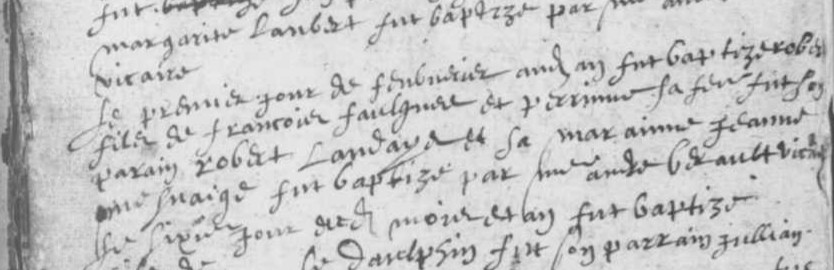 fut
margarite Lanbert fut baptize par
vicaire
Le premier jour de febvrier aud an fut baptize robert
filz de francoies faulques et perrinne sa feme fut son
parain robert Landaye et sa maraine jeanne
fut baptize par me andre berault vicaire
Le sixie jour desd moies et an fut baptize
le daulphin fut son parrain jullian